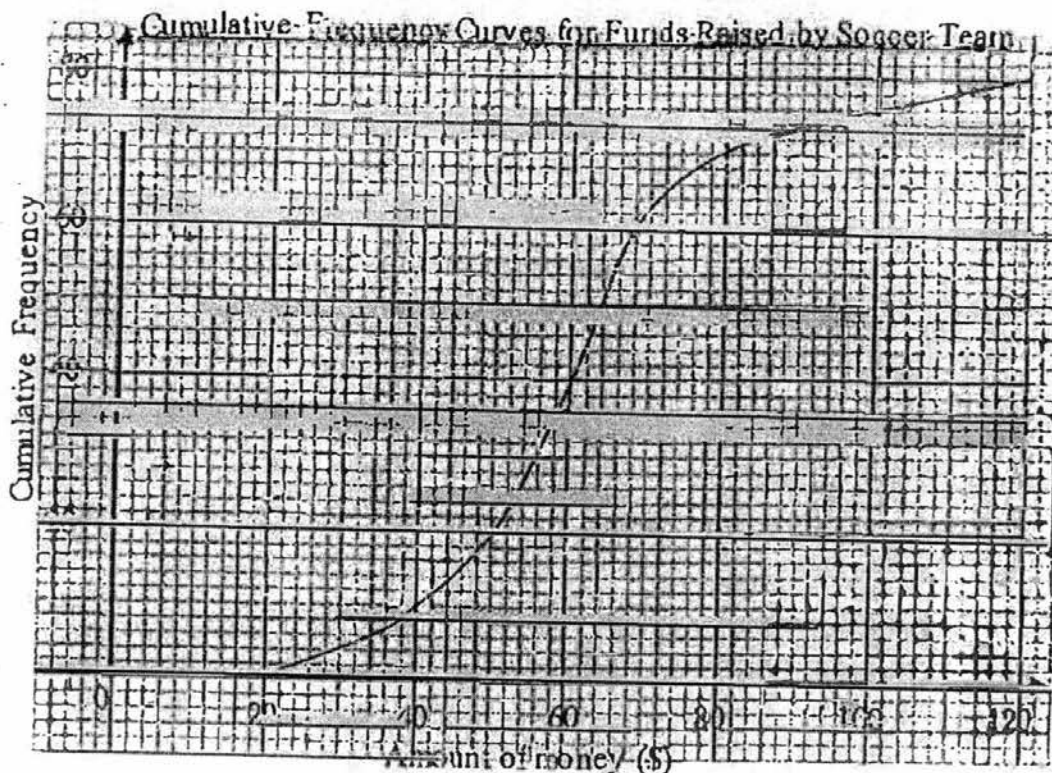 Cumulative Frequency Curves for Funds Raised by Soccer Team
Cumulative Frequency
0 20 40 60 80 100 120
Amount of money ($)